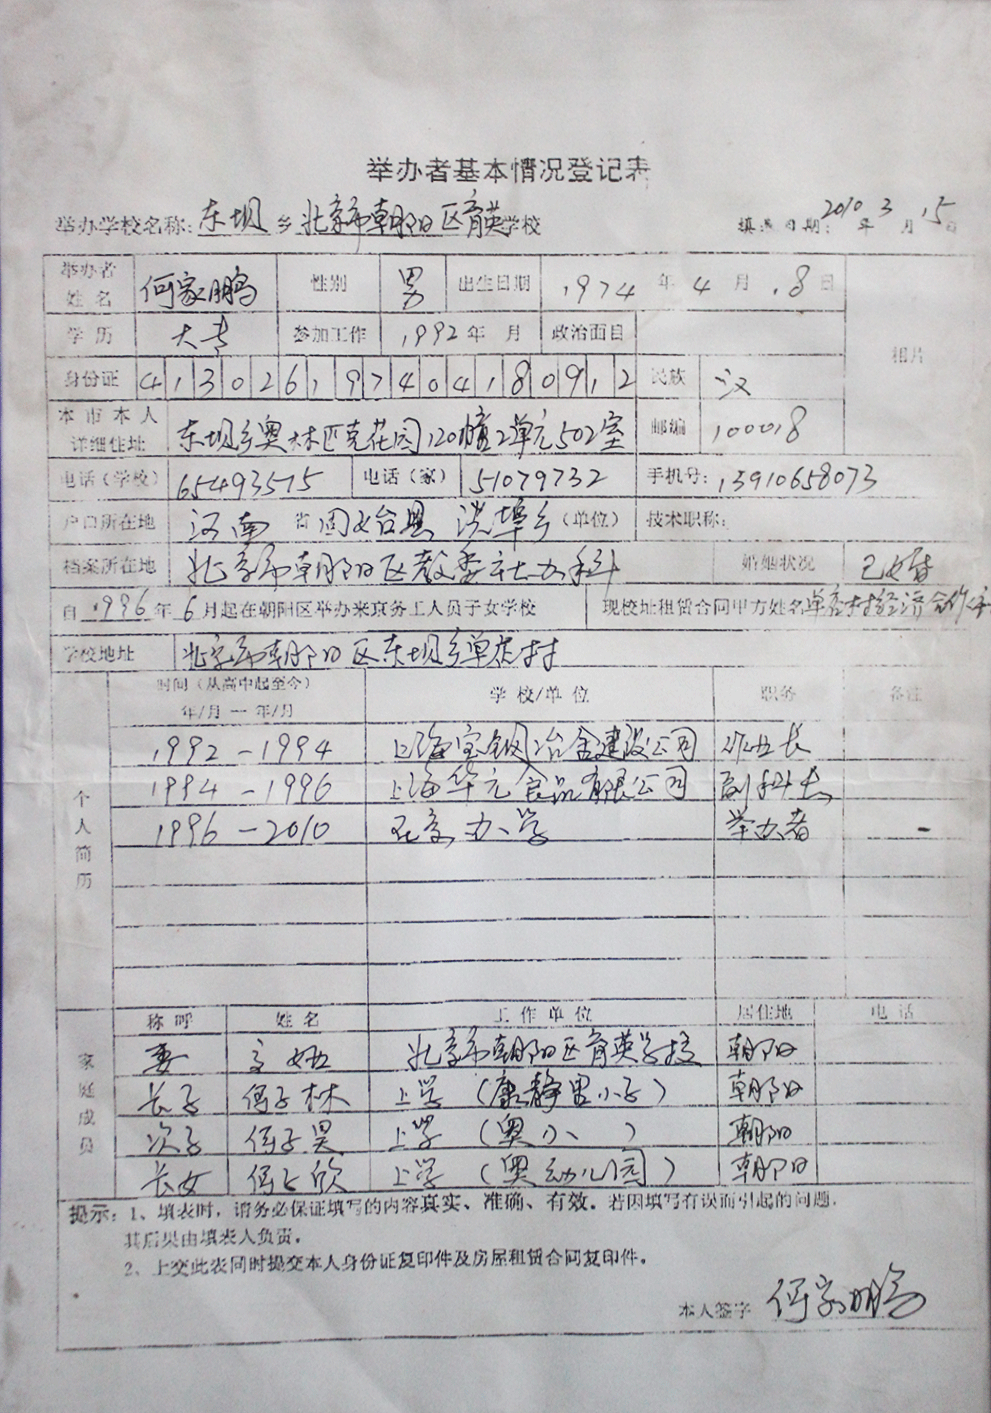 举办者基本情况登记表
举办学校名称: 东坝 乡 北京市朝阳区育英学校 填表日期: 2010 年 3 月 15 日
举办者姓名 何家鹏 性别 男 出生日期 1974 年 4 月 8 日 相片
学历 大专 参加工作 1992 年 月 政治面目
身份证 413026197404180912 民族 汉
本市本人详细住址 东坝乡奥林匹克花园120幢2单元502室 邮编 100018
电话(学校) 65493515 电话(家) 51079732 手机号: 13910658073
户口所在地 河南 省 固始县 洪埠乡 (单位) 技术职称:
档案所在地 北京市朝阳区教委社办科 婚姻状况 已婚
自 1996 年 6 月起在朝阳区举办来京务工人员子女学校 现校址租赁合同甲方姓名 单店村经济合作社
学校地址 北京市朝阳区东坝乡单店村
个人简历 时间(从高中起至今) 年/月 — 年/月 学校/单位 职务 备注
1992 - 1994 上海宝钢冶金建设公司 班长
1994 - 1996 上海华元食品有限公司 副科长
1996 - 2010 在京办学 举办者
家庭成员 称呼 姓名 工作单位 居住地 电话
妻 北京市朝阳区育英学校 朝阳
长子 何子林 上学 (康静里小学) 朝阳
次子 何子昊 上学 (奥小 ) 朝阳
长女 何 欣 上学 (奥幼儿园) 朝阳
提示: 1、填表时, 请务必保证填写的内容真实、准确、有效。若因填写有误而引起的问题,
其后果由填表人负责。
2、上交此表同时提交本人身份证复印件及房屋租赁合同复印件。
本人签字 何家鹏